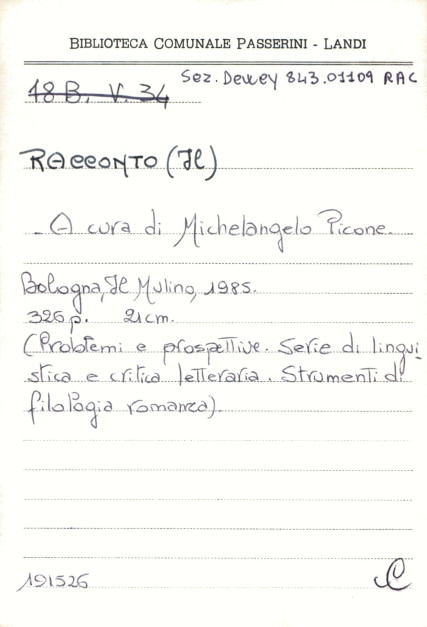 BIBLIOTECA COMUNALE PASSERINI - LANDI
Sez. Dewey 843.01109 RAC
18 B. V. 34
RACCONTO (Il)
- A cura di Michelangelo Picone.
Bologna, Il Mulino, 1985.
326 p. 21 cm.
(Problemi e prospettive. Serie di lingui
stica e critica letteraria. Strumenti di
filologia romanza).
191526
C